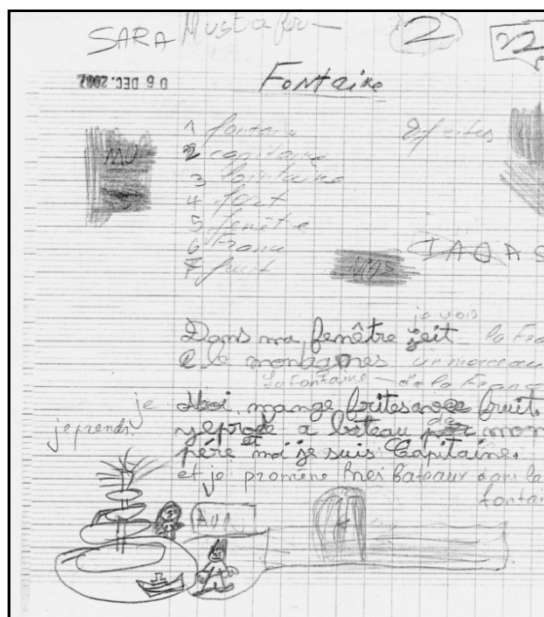 SARA Mustafa 2 22
06 DEC. 2002
Fontaine
1 fontaine 8 frites
2 capitaine
3 lointaine
4 fort
5 fenêtre
6 France
7 fruit
je vois
Dans ma fenêtre jeit la Fra
e le montagnes un morceau
la fontaine de la France
je Moi, mange frites avec fruit.
je prends a bateau de mon
père et moi je suis Capitaine.
et je promène mes bateaux dans la
fontai